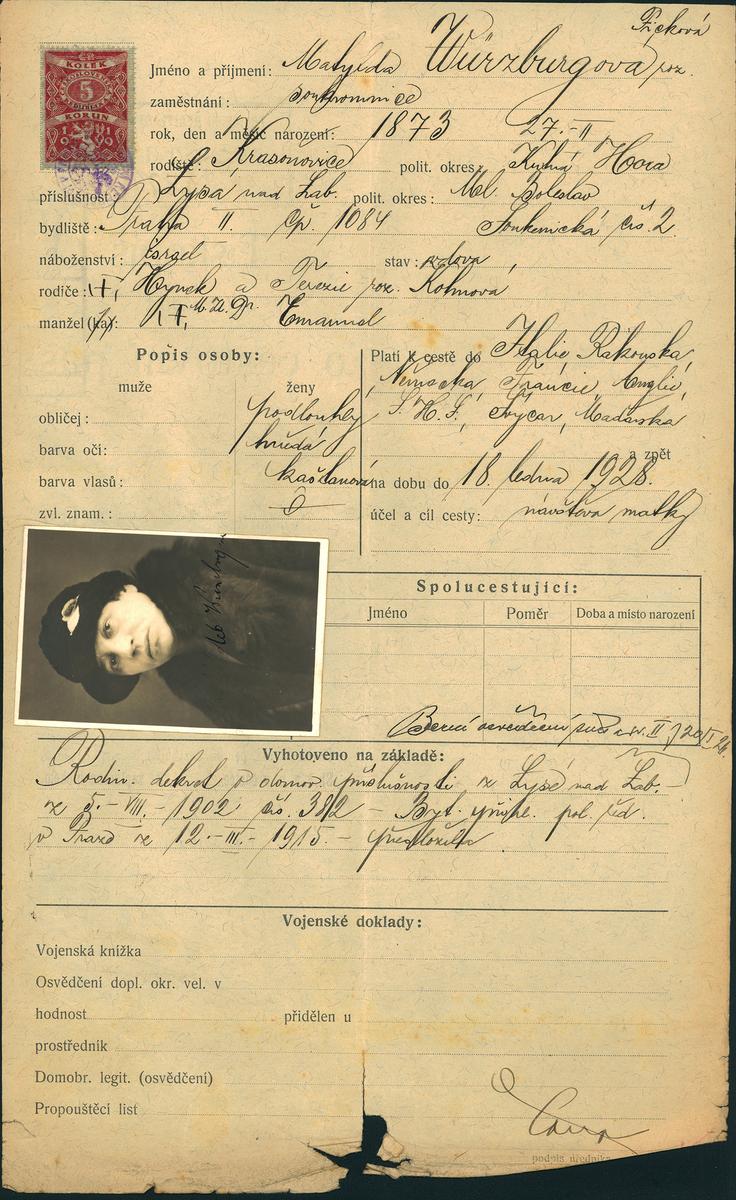 KOLEK
5
KORUN
1919
Jméno a příjmení: Matylda Würzburgová roz. Picková
zaměstnání: soukromnice
rok, den a měsíc narození: 1873 27.-II
rodiště: Krasoňovice polit. okres: Kutná Hora
příslušnost: Lysá nad Lab. polit. okres: Ml. Boleslav
bydliště: Praha II. čp. 1084 Soukenická čís. 2
náboženství: israel stav: vdova
rodiče: Hynek a Terezie roz. Kohnová
manžel (ka): M. U. Dr. Emanuel
Popis osoby:
muže ženy
obličej: podlouhlý
barva očí: hnědá
barva vlasů: kaštanová
zvl. znam.:
Platí k cestě do Italie, Rakouska,
Německa, Francie, Anglie,
S. H. S., Švýcar, Maďarska
a zpět
na dobu do 18. ledna 1928.
účel a cíl cesty: návštěva matky
Spolucestující:
Jméno Poměr Doba a místo narození
Berní osvědčení
Vyhotoveno na základě:
Rodin. dekret o domov. příslušnosti z Lysé nad Lab.
ze 5.-VIII.-1902 čís. 382 - Byt. přihl. pol. řed.
v Praze ze 12.-III.-1915.- předložila
Vojenské doklady:
Vojenská knížka
Osvědčení dopl. okr. vel. v
hodnost přidělen u
prostředník
Domobr. legit. (osvědčení)
Propouštěcí list
podpis úředníka